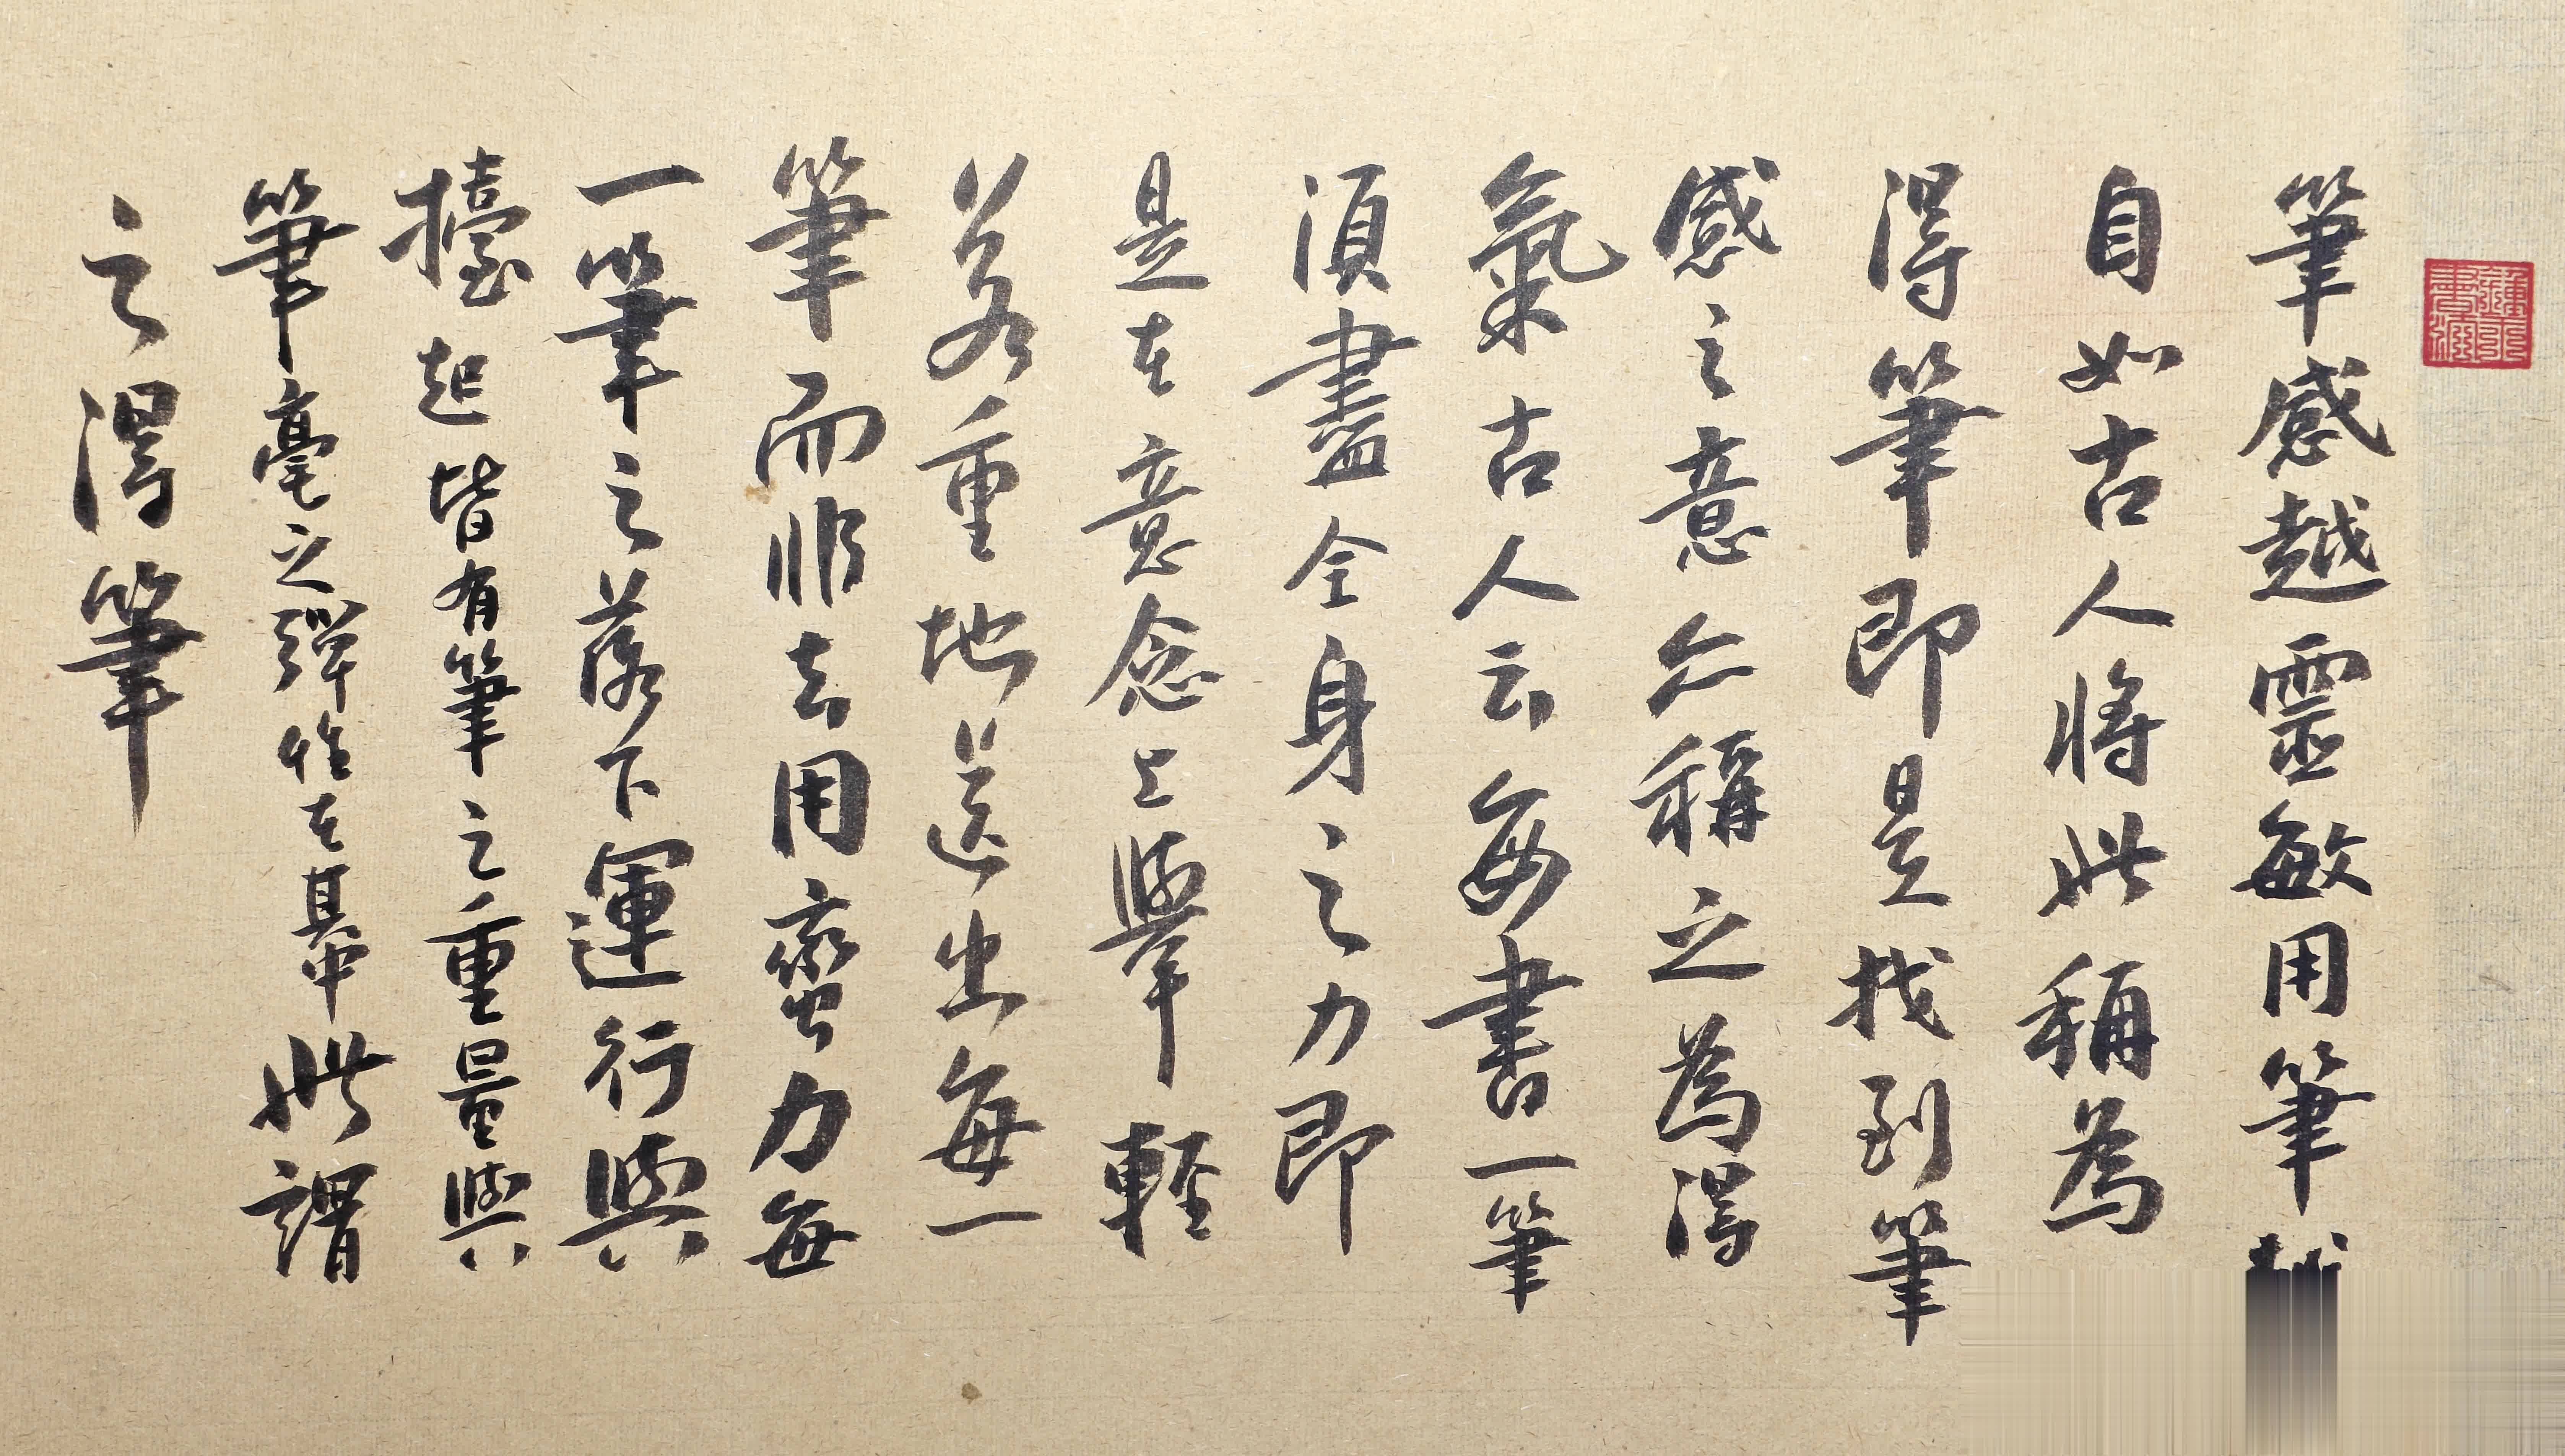 筆感越靈敏用筆
自如古人將此稱為
得筆即是找到筆
感之意亦稱之為得
氣古人云每書一筆
須盡全身之力即
是在意念上舉輕
若重地送出每一
筆而非去用蠻力每
一筆之落下運行與
擡起皆有筆之重量與
筆毫之彈性在其中此謂
之得筆